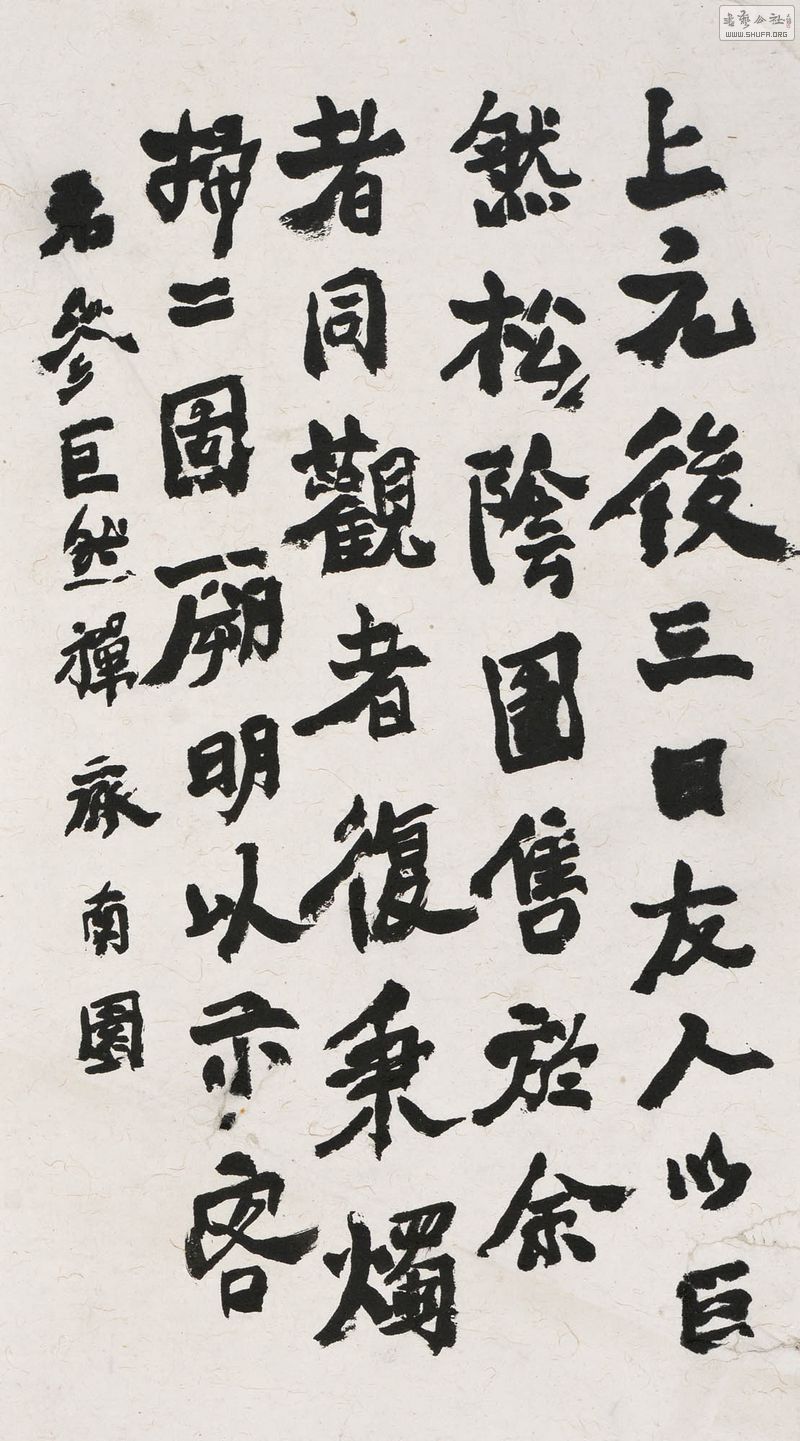 上元後三日友人以巨
然松陰圖售於余
者同觀者復秉燭
掃二圖厥明以示客
若參巨然禪 南園
書藝公社
WWW.SHUFA.ORG